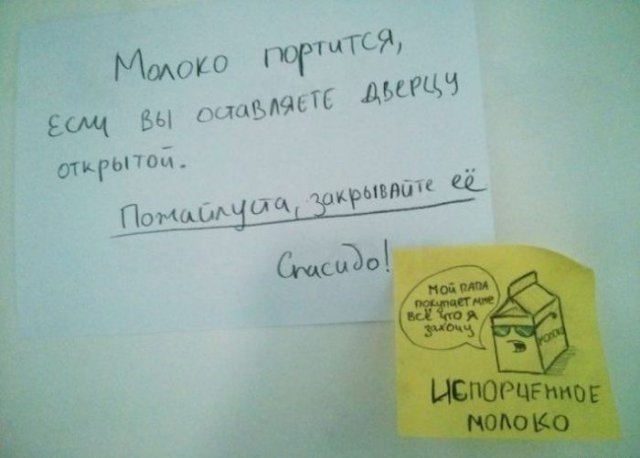 Молоко портится,
если вы оставляете дверцу
открытой.
Пожайлуста, закрывайте её
Спасибо!
Мой папа
покупает мне
всё что я
захочу
молоко
Испорченное
молоко